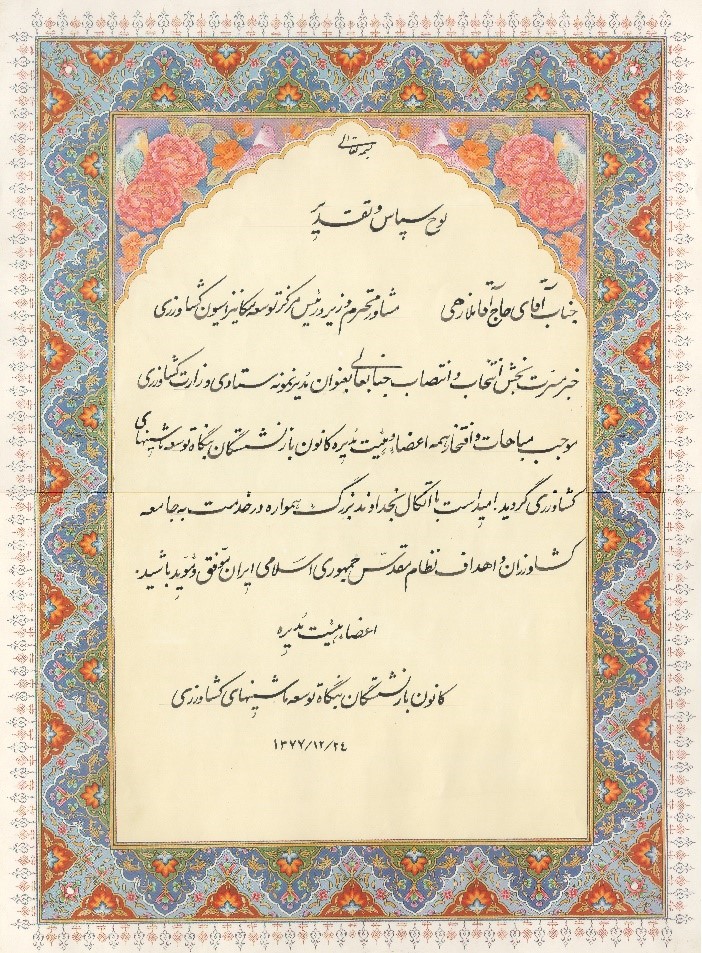 بسمه تعالی
لوح سپاس و تقدیر
جناب آقای حاج آقا ملازهی مشاور محترم وزیر و رئیس مرکز توسعه مکانیزاسیون کشاورزی
خبر مسرت بخش انتخاب و انتصاب جنابعالی بعنوان مدیر نمونه ستادی وزارت کشاورزی
موجب مباهات و افتخار همه اعضاء و هیئت مدیره کانون بازنشستگان بنگاه توسعه ماشینهای
کشاورزی گردید امید است با اتکال بخداوند بزرگ همواره در خدمت به جامعه
کشاورزان و اهداف نظام مقدس جمهوری اسلامی ایران موفق و موید باشید.
اعضاء هیئت مدیره
کانون بازنشستگان بنگاه توسعه ماشینهای کشاورزی
۱۳۷۷/۱۲/۲۴